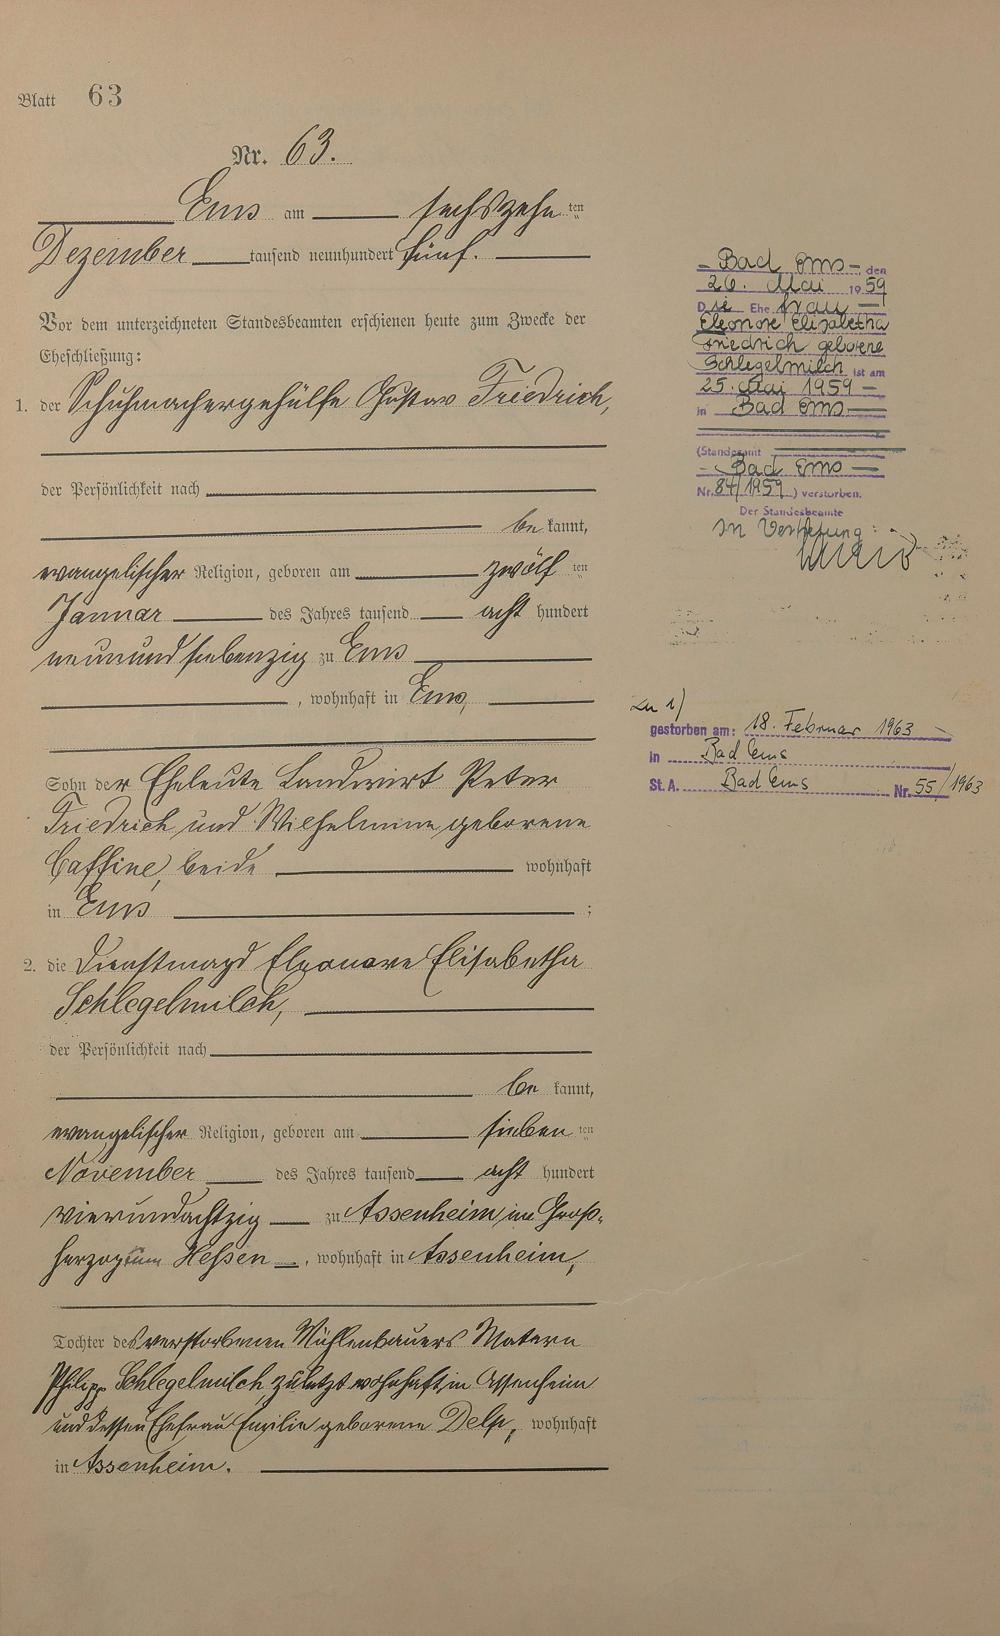 Blatt 63
Nr. 63.
Ems am sechszehnten
Dezember tausend neunhundert fünf.
Vor dem unterzeichneten Standesbeamten erschienen heute zum Zwecke der
Eheschließung:
1. der Schuhmachergehülfe Gustav Friedrich,
der Persönlichkeit nach
be kannt,
evangelischer Religion, geboren am zwölf ten
Januar des Jahres tausend acht hundert
neunundsiebenzig zu Ems
, wohnhaft in Ems,
Sohn der Eheleute Landwirt Peter
Friedrich und Wilhelmine geborene
Caffine, beide wohnhaft
in Ems ;
2. die Dienstmagd Eleonore Elisabetha
Schlegelmilch,
der Persönlichkeit nach
be kannt,
evangelischer Religion, geboren am sieben ten
November des Jahres tausend acht hundert
vierundachtzig zu Assenheim im Groß-
herzogtum Hessen, wohnhaft in Assenheim,
Tochter des verstorbenen Mühlenbauers Matern
Philipp Schlegelmilch, zuletzt wohnhaft in Assenheim
und dessen Ehefrau Emilie geborene Delp, wohnhaft
in Assenheim.
Bad Ems, den
26. Mai 1959
Die Ehefrau
Eleonore Elisabetha
Friedrich geborene
Schlegelmilch ist am
25. Mai 1959
in Bad Ems
(Standesamt
Bad Ems
Nr. 84/1959) verstorben.
Der Standesbeamte
In Vertretung:
Zu 1)
gestorben am: 18. Februar 1963
in Bad Ems
St. A. Bad Ems Nr. 55/1963